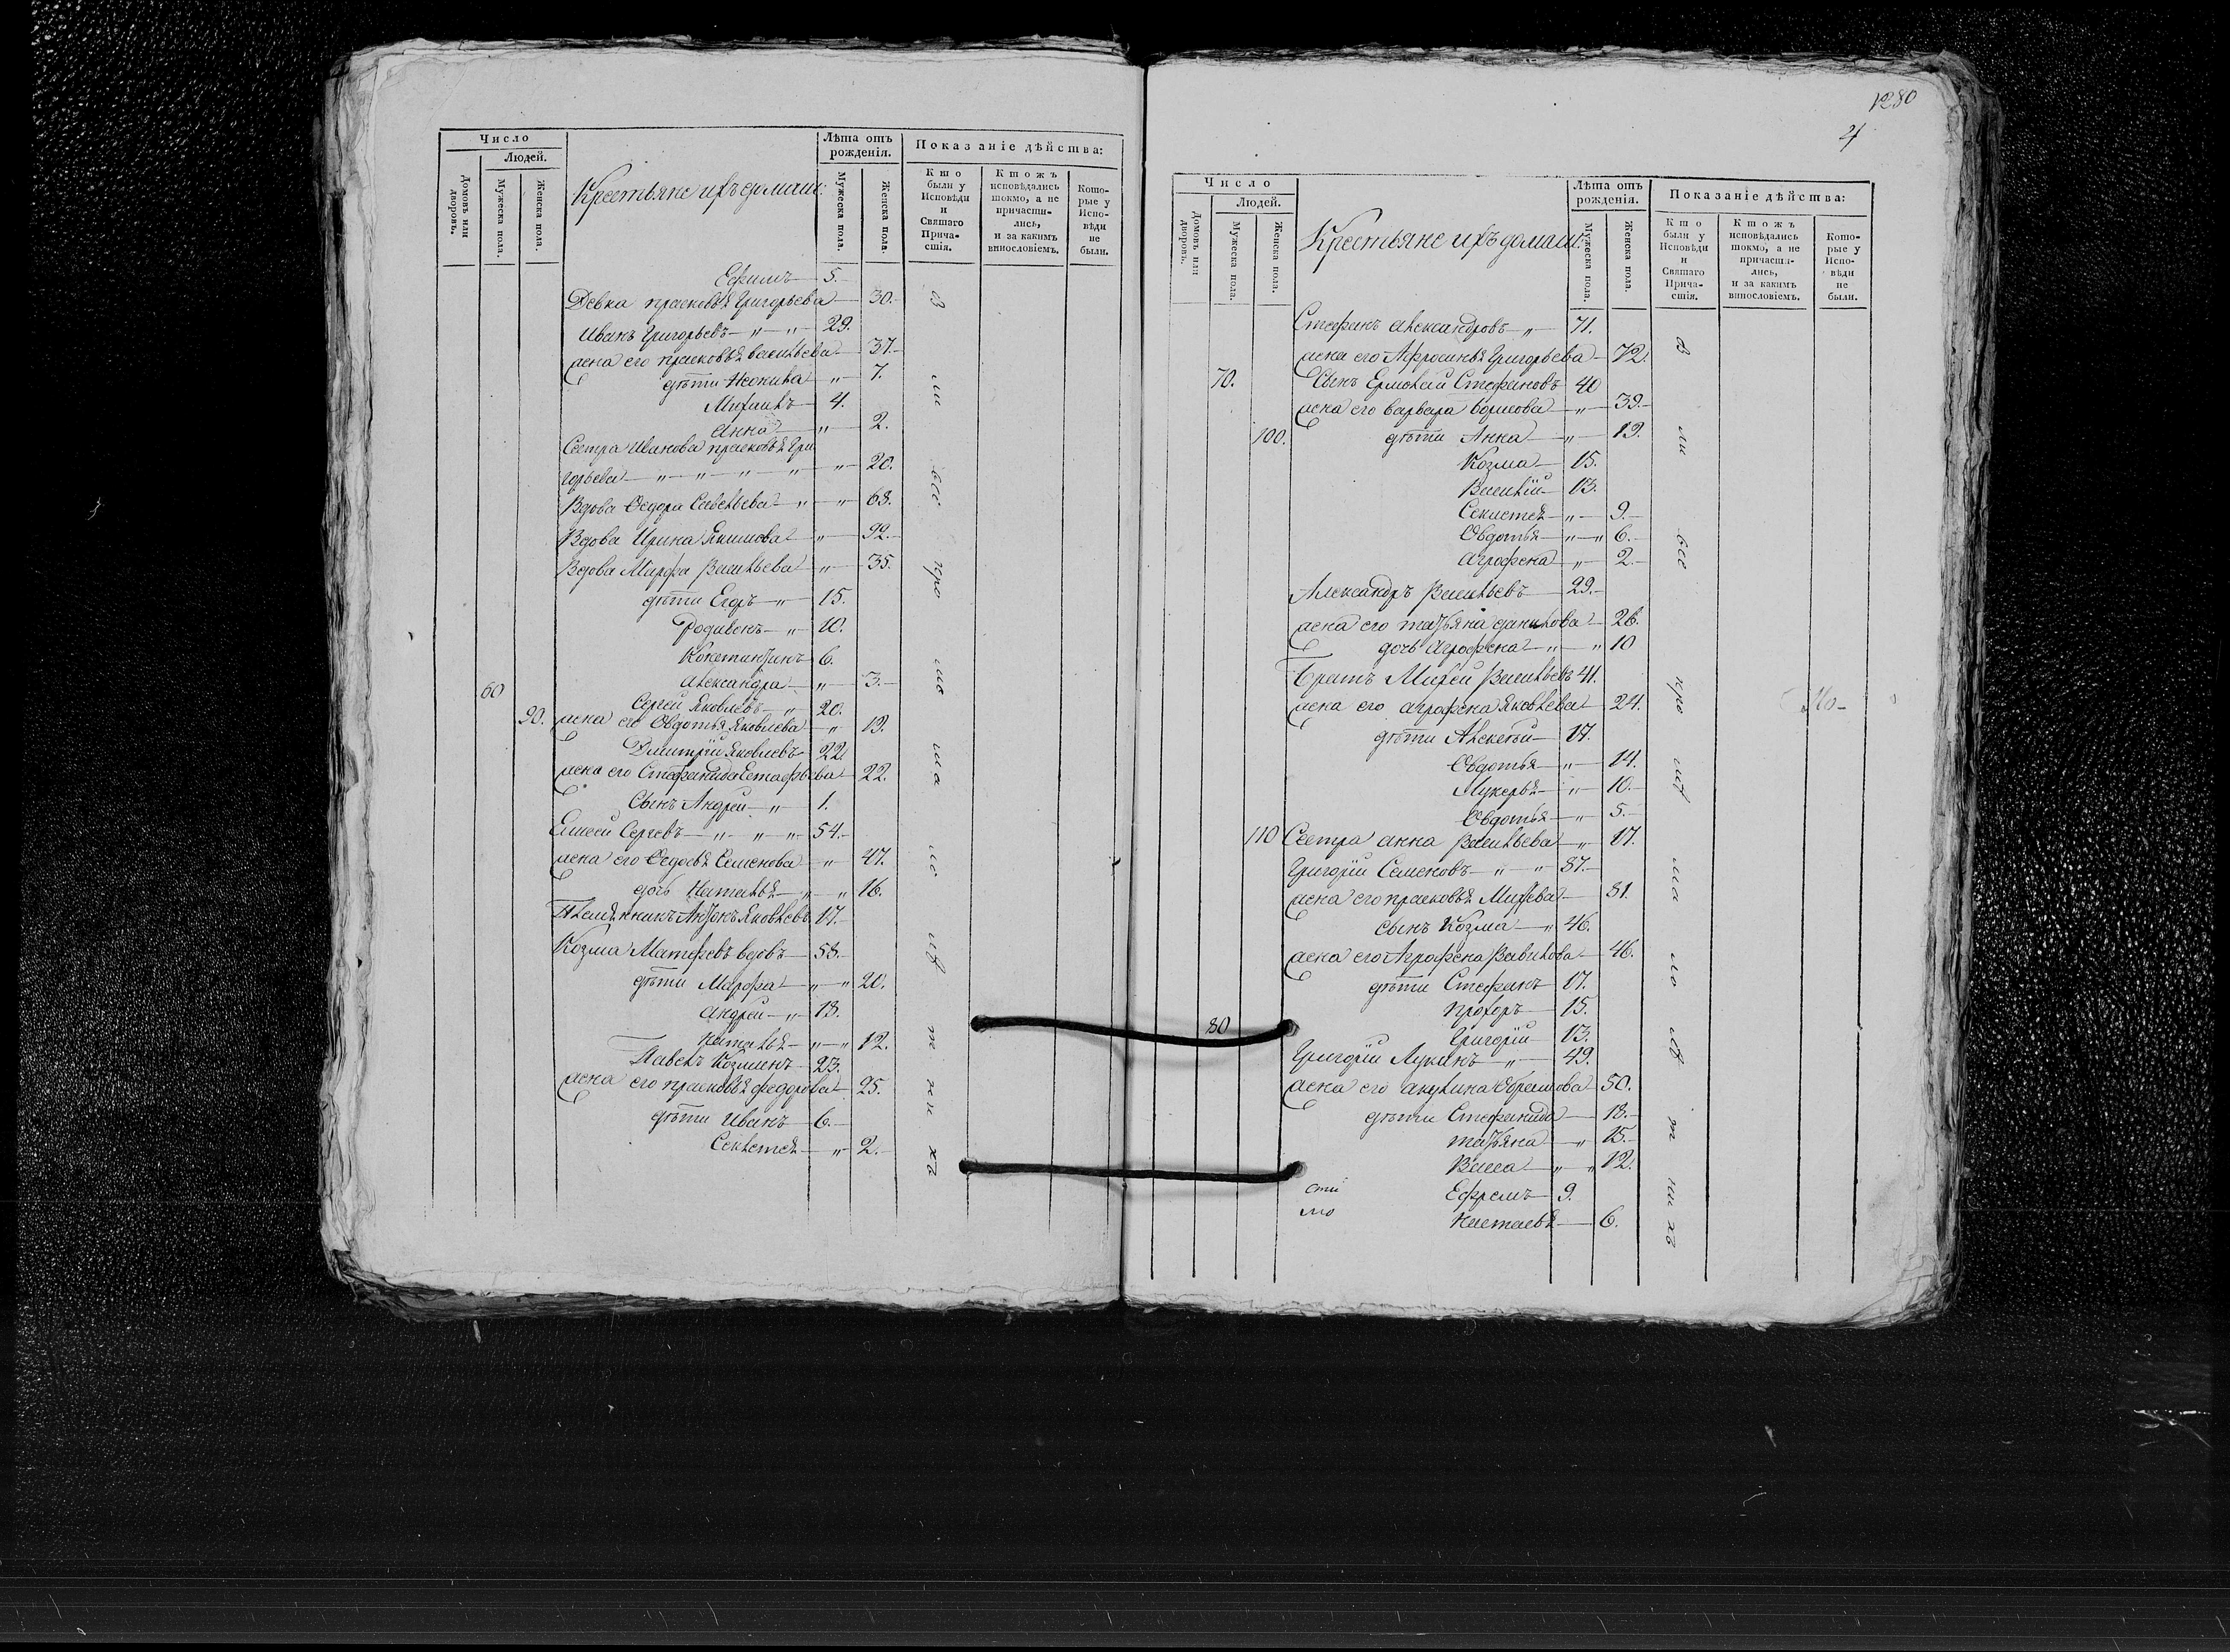 Число
Людей.
Домовъ или дворовъ.
Мужеска пола.
Женска пола.
Крестьяне ихъ домаш:
Лѣта отъ рожденія.
Мужеска пола.
Женска пола.
Показаніе дѣйства:
Кто были у Исповѣди и Святаго Причастія.
Ктожъ исповѣдались токмо, а не причастились, и за какимъ винословіемъ.
Которые у Исповѣди не были.
Ефимъ 5.
Девка прасковья Григорьева 30.
Иванъ Григорьевъ 29.
жена его прасковья васильева 37.
дѣти 7.
Михаилъ 4.
Анна 2.
Сестра Иванова прасковья Гри
горьева 20.
Вдова Ѳедора Савельева 68.
Вдова Ирина Якимова 92.
Вдова Марфа Васильева 35.
дѣти Егоръ 15.
Родивонъ 10.
Констинтинъ 6.
Александра 3.
60 Сергей Яковлевъ 20.
90. жена его Овдотья Яковлева 19.
Дмитрій Яковлевъ 22.
жена его Стефанида Естафьева 22.
Сынъ Андрей 1.
Елисей Сергевъ 54.
жена его Ѳедосья Семенова 47.
дочь Наталья 16.
Племянникъ Антонъ Яковлевъ 17.
Козма Матфевъ вдовъ 58.
дѣти Марфа 20.
Андрей 18.
Наталья 12.
Павелъ Козминъ 23.
жена его прасковья федорова 25.
дѣти Иванъ 6.
Секлетея 2.
1280
4
Число
Людей.
Домовъ или дворовъ.
Мужеска пола.
Женска пола.
Крестьяне ихъ домаш:
Лѣта отъ рожденія.
Мужеска пола.
Женска пола.
Показаніе дѣйства:
Кто были у Исповѣди и Святаго Причастія.
Ктожъ исповѣдались токмо, а не причастились, и за какимъ винословіемъ.
Которые у Исповѣди не были.
Стефанъ Александровъ 71.
жена его Афросинья Григорьева 72.
70. Сынъ Ермолай Стефановъ 40
жена его варвара борисова 39.
100. дѣти Анна 19.
Козма 15.
Василій 13.
9.
Овдотья 6.
Агрофена 2.
Александръ Васильевъ 29.
жена его татьяна данилова 28.
дочь Агрофена 10
Братъ Михей Васильевъ 41.
жена его Агрофена Яковлева 24.
дѣти Алексѣй 17.
Овдотья 14.
Лукерья 10.
Овдотья 5.
110 Сестра анна Васильева 17.
Григорій Семеновъ 87.
жена его прасковья Михева 81.
сынъ Козма 46.
жена его Агрофена Вавилова 46.
дѣти Стефанъ 17.
прохоръ 15.
80 Григорій 13.
Григорій Лукинъ 49.
жена его акулина Ѳбрамова 50.
дѣти Стефанида 18.
татьяна 15.
Васса 12.
Ефремъ 9.
Настасья 6.